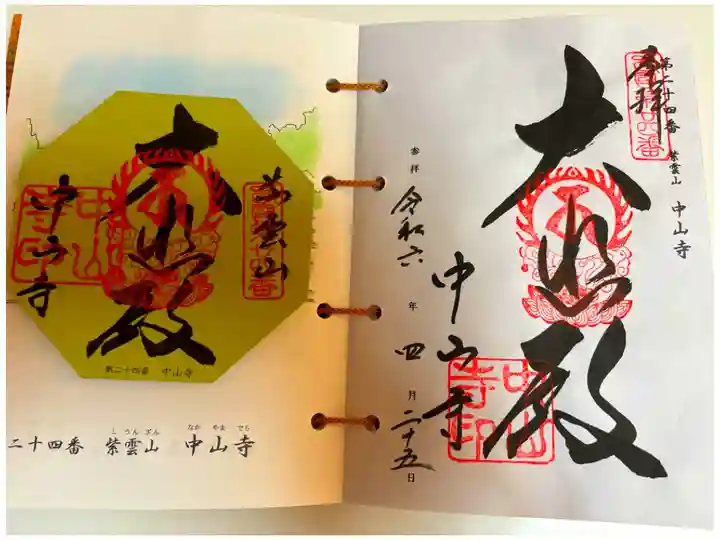 奉拝
第二十四番 紫雲山 中山寺
大悲殿
中山寺
中山寺印
参拝 令和六年四月二十五日
紫雲山
大悲殿
中山寺
中山寺印
第二十四番 中山寺
二十四番 紫雲山 中山寺
しうんざん なかやまでら